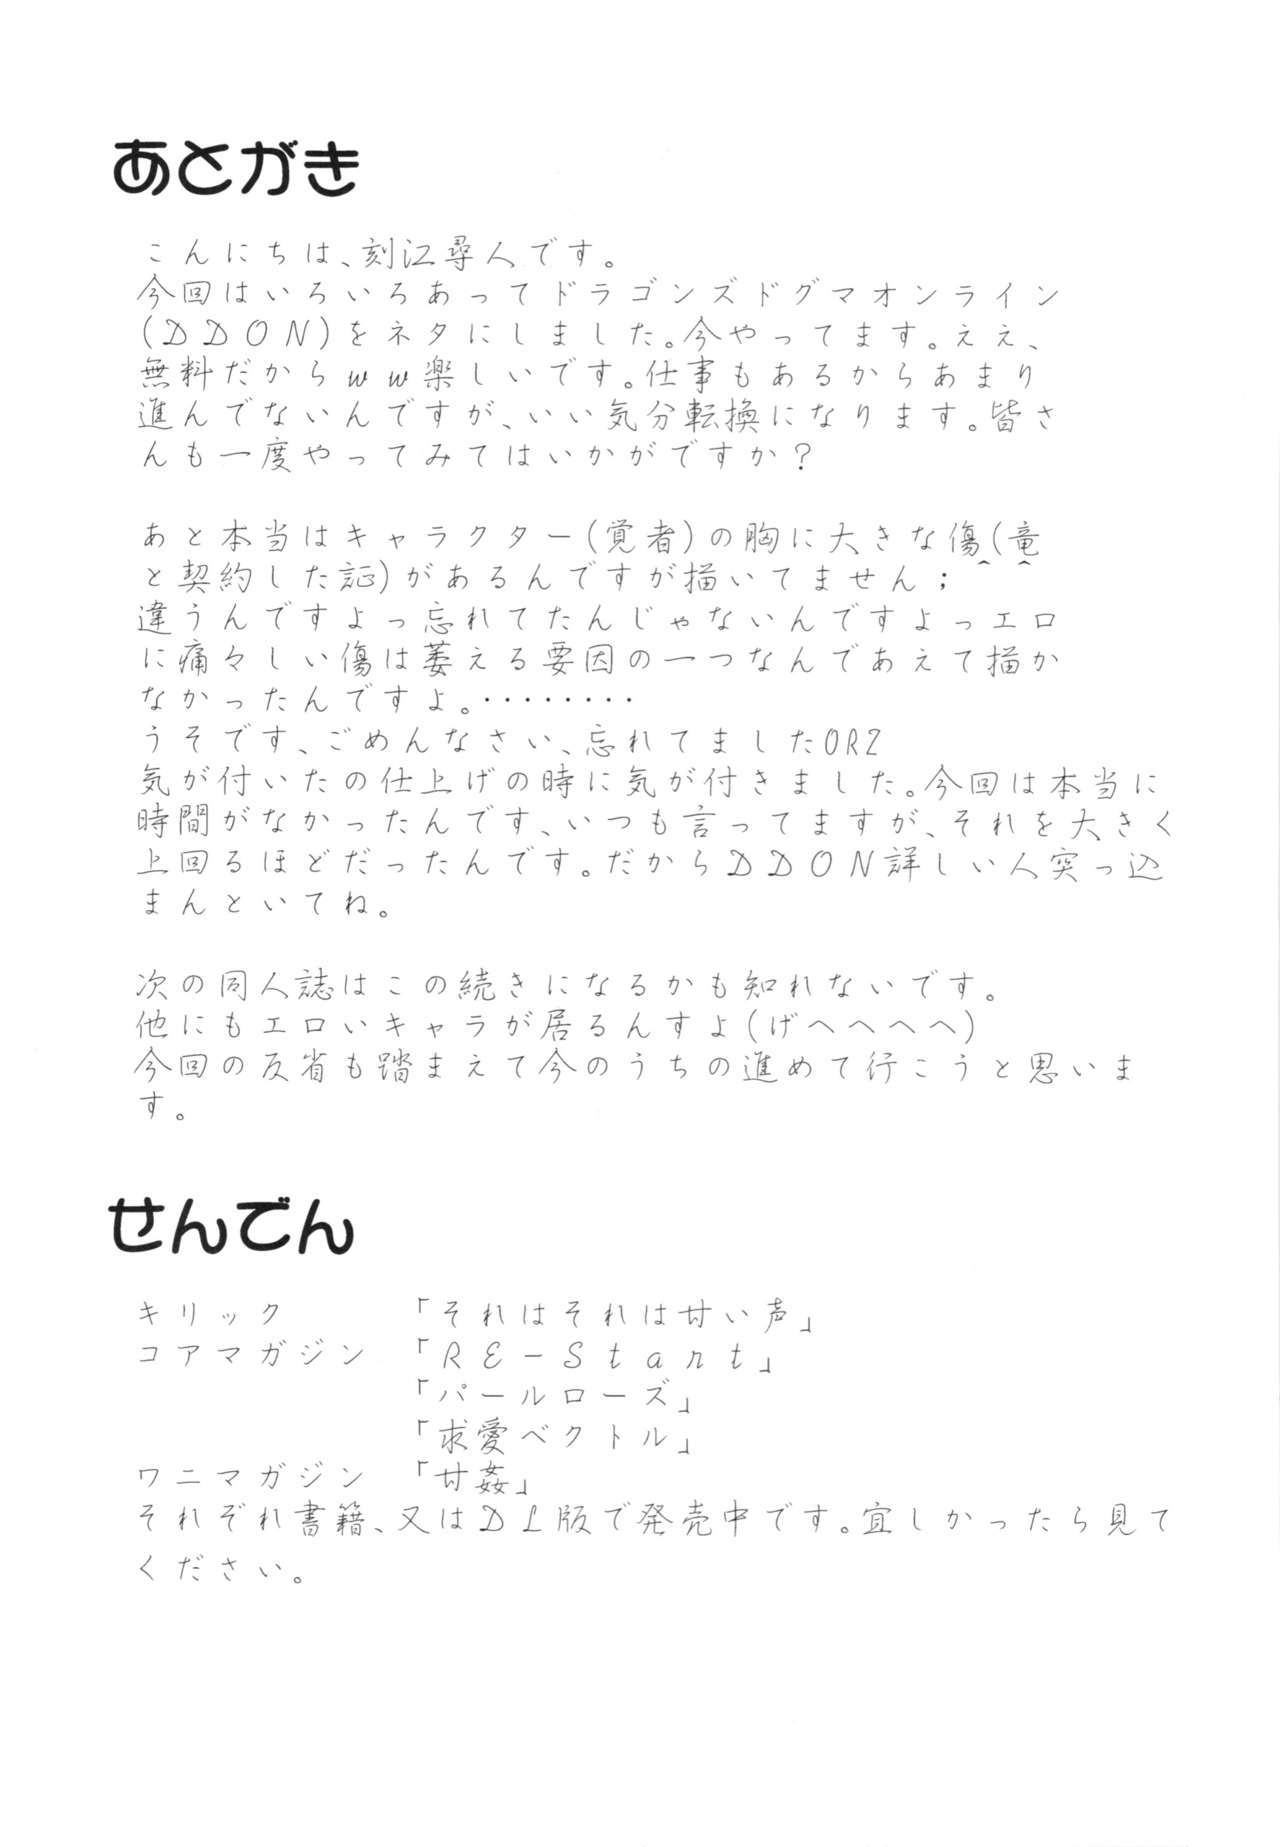 あとがき
こんにちは、刻江尋人です。
今回はいろいろあってドラゴンズドグマオンライン
(DDON)をネタにしました。今やってます。ええ、
無料だからww楽しいです。仕事もあるからあまり
進んでないんですが、いい気分転換になります。皆さ
んも一度やってみてはいかがですか?
あと本当はキャラクター(覚者)の胸に大きな傷(竜
と契約した証)があるんですが描いてません;^ ^
違うんですよっ忘れてたんじゃないんですよっエロ
に痛々しい傷は萎える要因の一つなんであえて描か
なかったんですよ。・・・・・・・・
うそです、ごめんなさい、忘れてましたORZ
気が付いたの仕上げの時に気が付きました。今回は本当に
時間がなかったんです、いつも言ってますが、それを大きく
上回るほどだったんです。だからDDON詳しい人突っ込
まんといてね。
次の同人誌はこの続きになるかも知れないです。
他にもエロいキャラが居るんすよ(げへへへへ)
今回の反省も踏まえて今のうちの進めて行こうと思いま
す。
せんでん
キリック 「それはそれは甘い声」
コアマガジン 「RE-Start」
「パールローズ」
「求愛ベクトル」
ワニマガジン 「甘姦」
それぞれ書籍、又はDL版で発売中です。宜しかったら見て
ください。